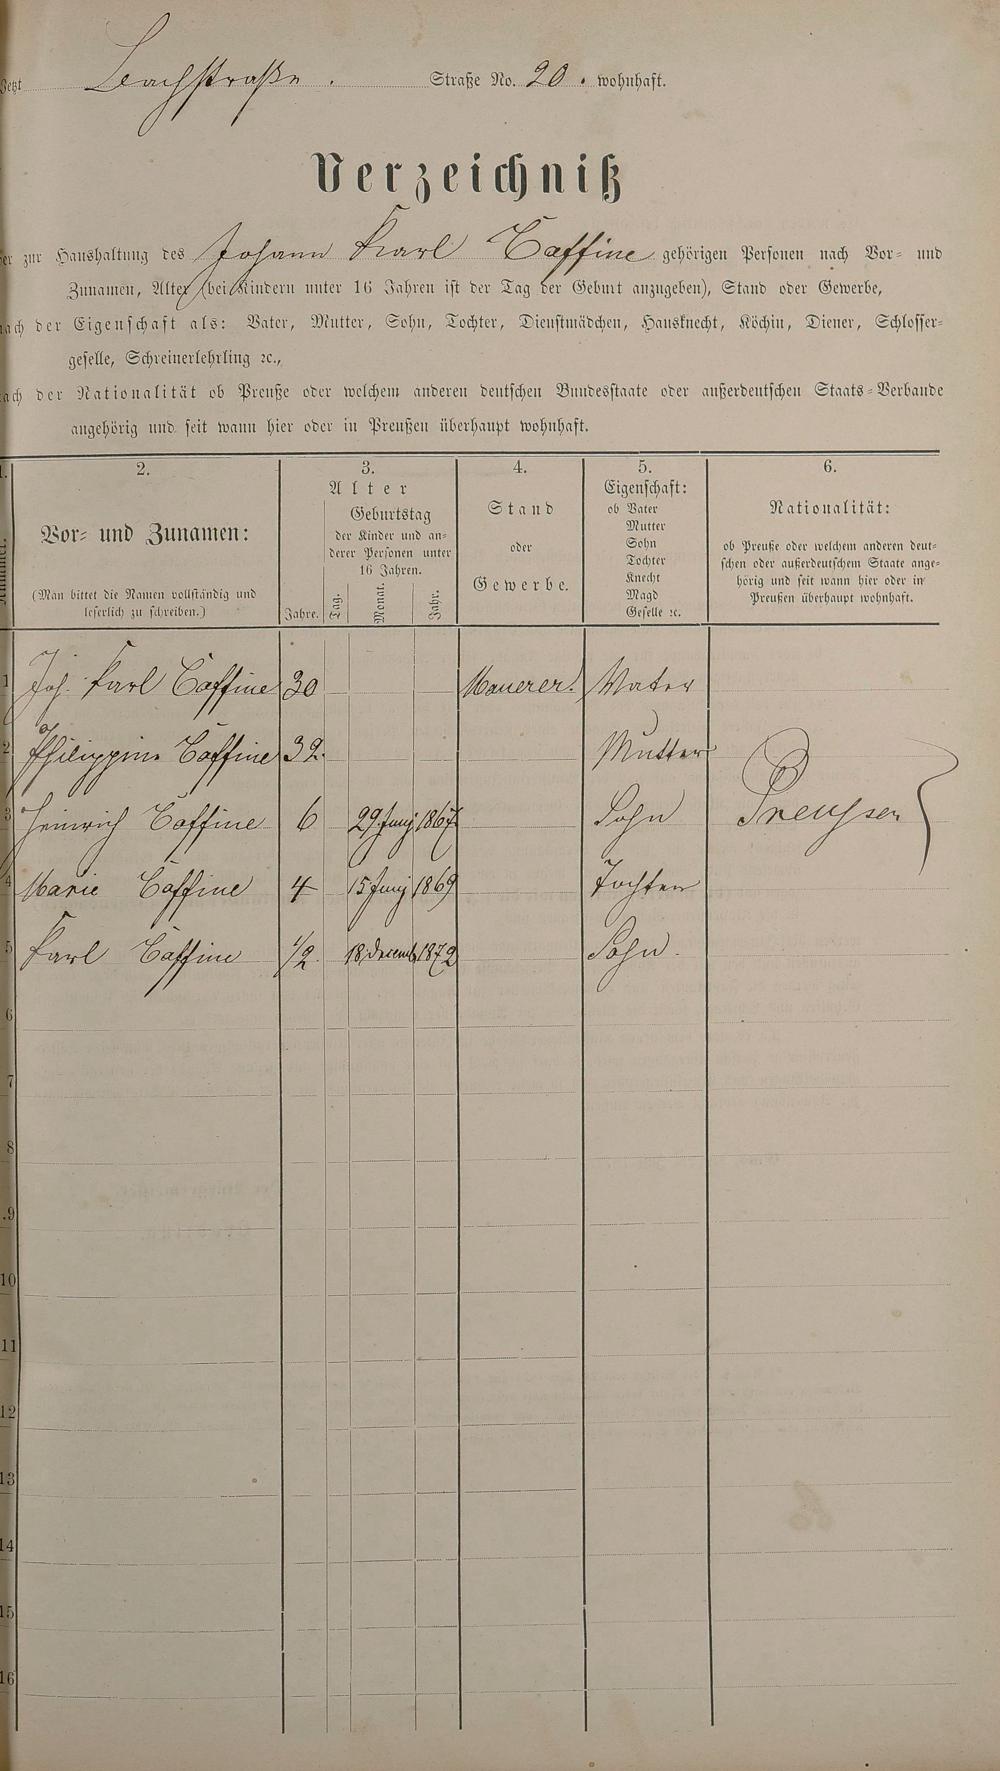 Jetzt Bachstraße. Straße No. 20. wohnhaft.
Verzeichniß
der zur Haushaltung des Johann Karl Caffine gehörigen Personen nach Vor- und
Zunamen, Alter (bei Kindern unter 16 Jahren ist der Tag der Geburt anzugeben), Stand oder Gewerbe,
nach der Eigenschaft als: Vater, Mutter, Sohn, Tochter, Dienstmädchen, Hausknecht, Köchin, Diener, Schlosser-
geselle, Schreinerlehrling ꝛc.,
nach der Nationalität ob Preuße oder welchem anderen deutschen Bundesstaate oder außerdeutschen Staats-Verbande
angehörig und seit wann hier oder in Preußen überhaupt wohnhaft.
1. 2. 3. 4. 5. 6.
Nummer.
Vor- und Zunamen:
(Man bittet die Namen vollständig und
leserlich zu schreiben.)
Alter
Jahre.
Geburtstag
der Kinder und an-
derer Personen unter
16 Jahren.
Tag. Monat. Jahr.
Stand
oder
Gewerbe.
Eigenschaft:
ob Vater
Mutter
Sohn
Tochter
Knecht
Magd
Geselle ꝛc.
Nationalität:
ob Preuße oder welchem anderen deut-
schen oder außerdeutschem Staate ange-
hörig und seit wann hier oder in
Preußen überhaupt wohnhaft.
1 Joh. Karl Caffine 30 Maurer. Vater
2 Philippine Caffine 32. Mutter
3 Heinrich Caffine 6 29 Juny 1867 Sohn Preussen
4 Marie Caffine 4 15 Juny 1869 Tochter
5 Karl Caffine 1/2. 18 Decemb 1872 Sohn.
6
7
8
9
10
11
12
13
14
15
16